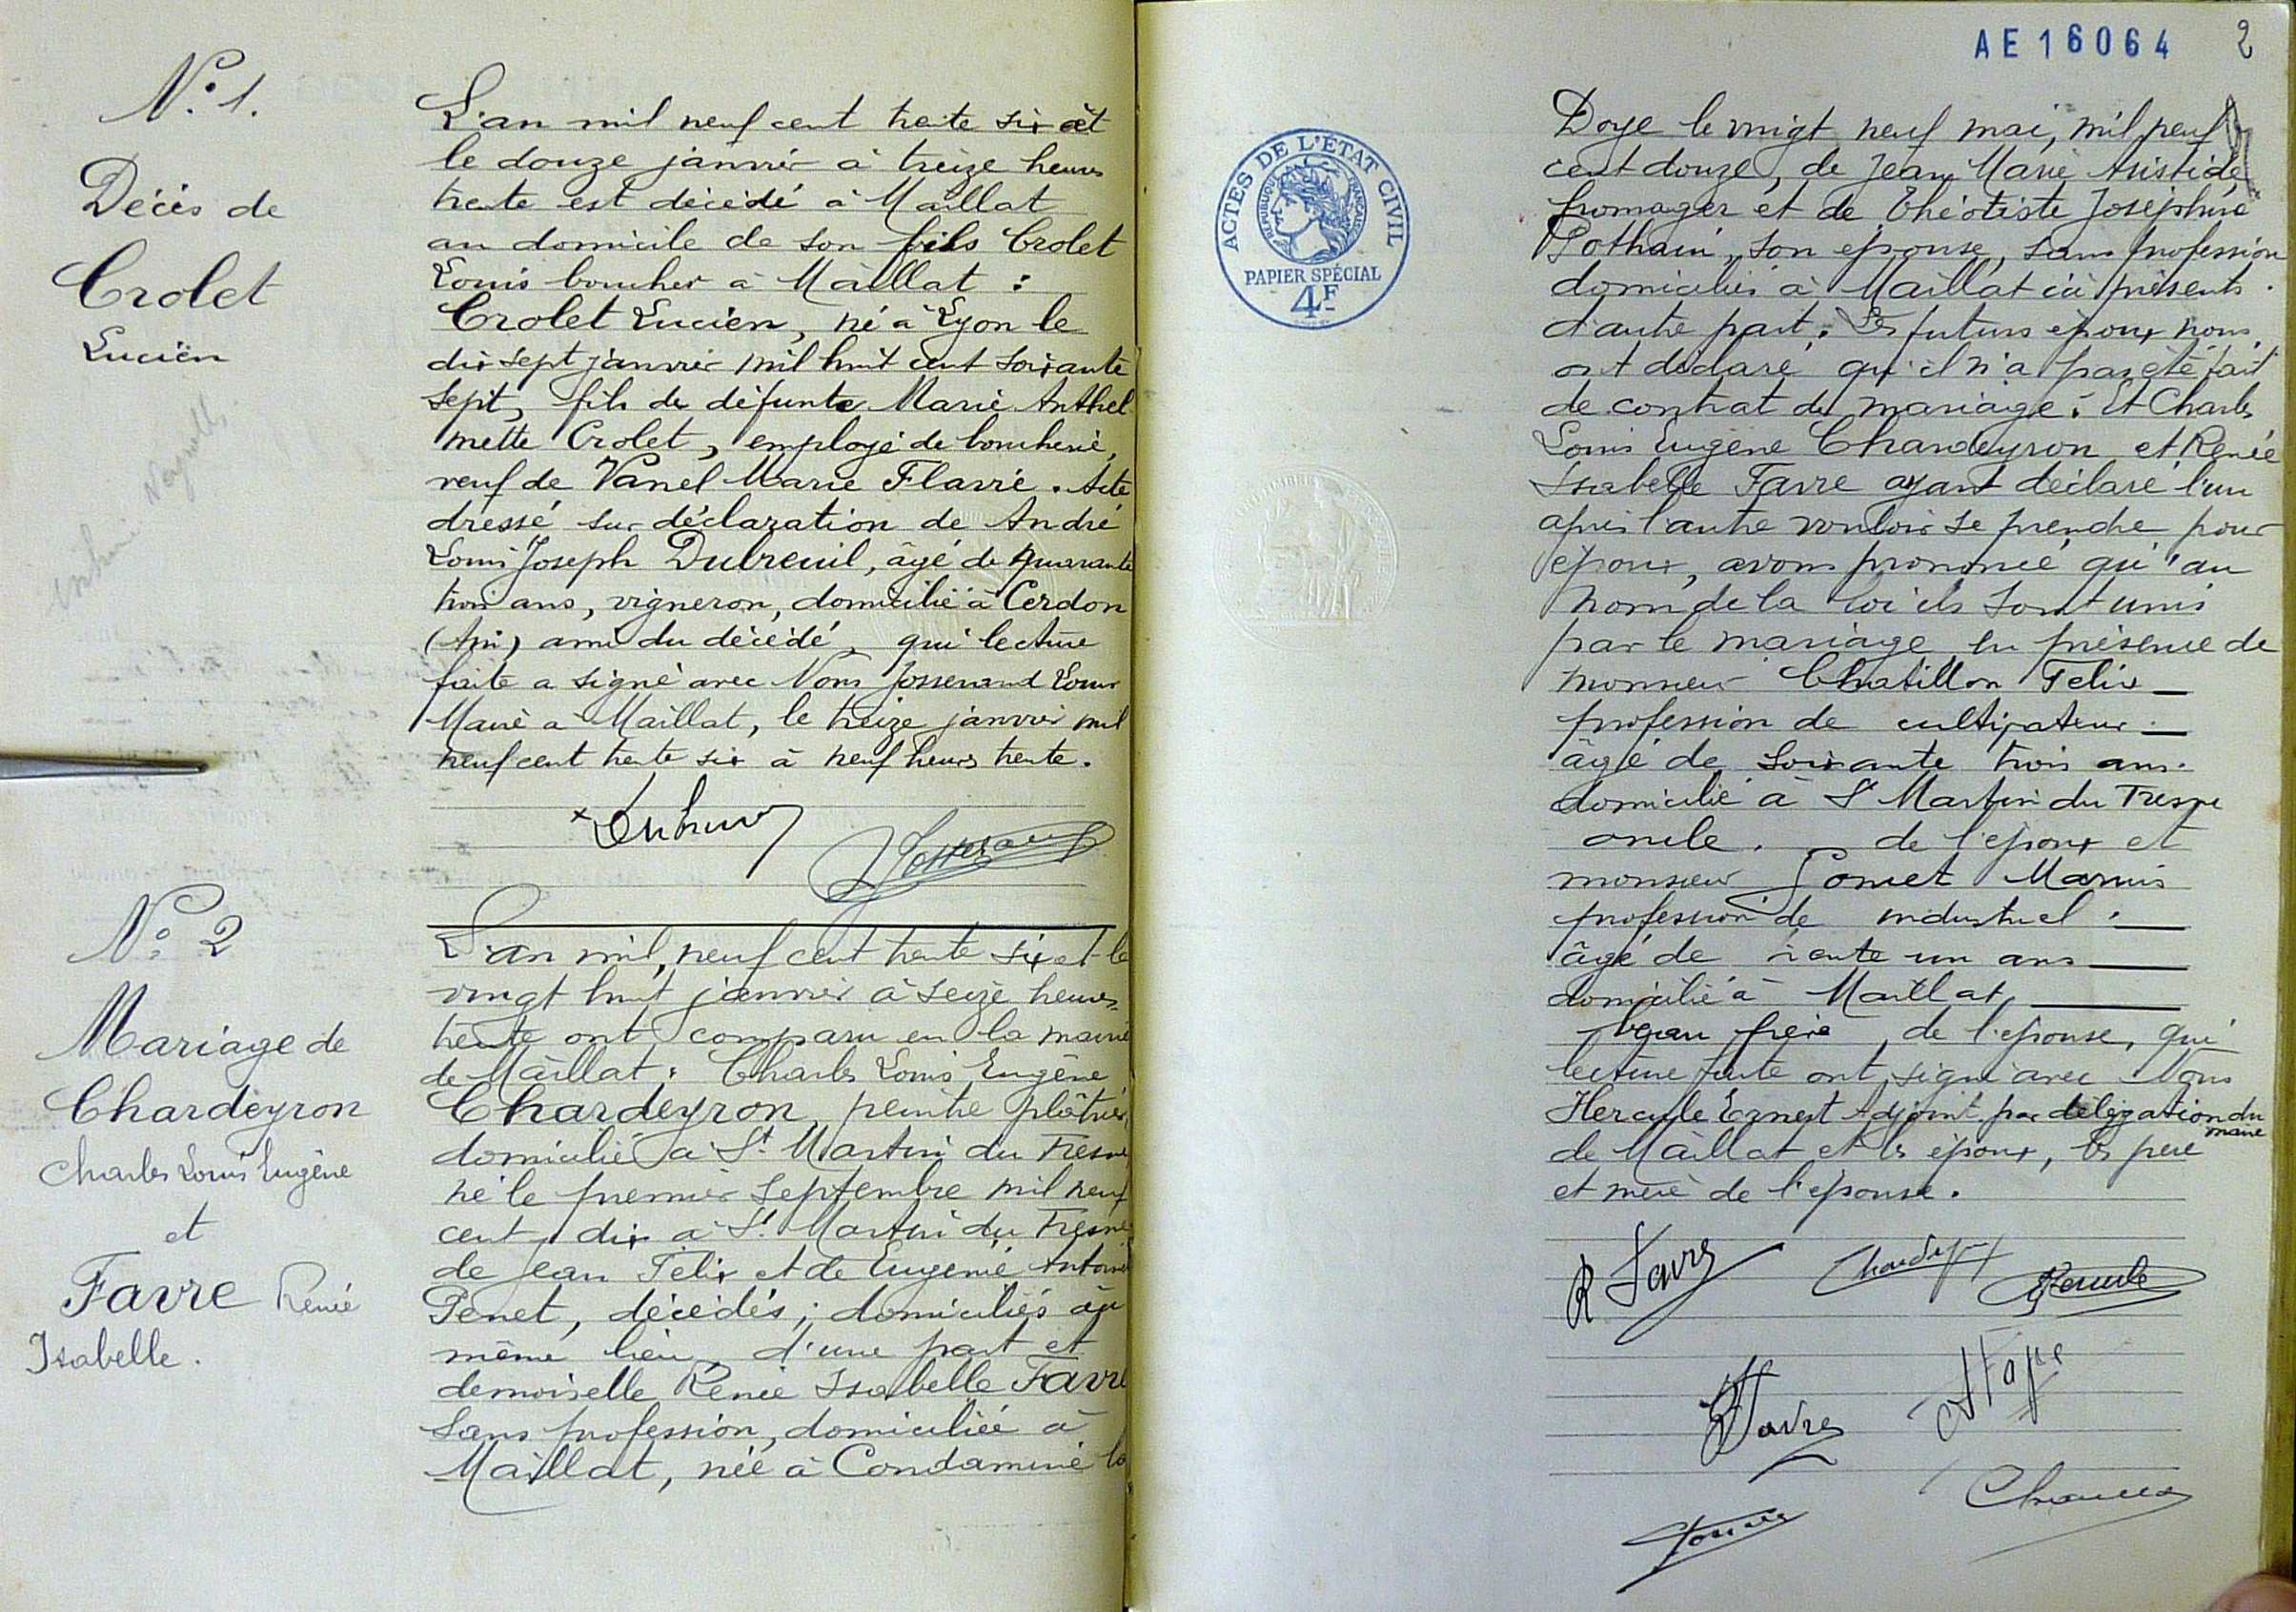 N° 1.
Décès de
Crolet
Lucien
L'an mil neuf cent trente six et
le douze janvier à treize heures
trente est décédé à Maillat
au domicile de son fils Crolet
Louis boucher à Maillat :
Crolet Lucien, né à Lyon le
dix sept janvier mil huit cent soixante
sept, fils de défunte Marie Anthel
mette Crolet, employé de boucherie,
veuf de Vanel Marie Flavie. Acte
dressé sur déclaration de André
Louis Joseph Dubreuil, âgé de quarante
trois ans, vigneron, domicilié à Cerdon
(Ain) ami du décédé, qui lecture
faite a signé avec Nous Josserand Louis
Maire à Maillat, le treize janvier mil
neuf cent trente six à neuf heures trente.
N° 2
Mariage de
Chardeyron
Charles Louis Eugène
et
Favre Renée
Isabelle.
L'an mil neuf cent trente six et le
vingt huit janvier à seize heures
trente ont comparu en la mairie
de Maillat : Charles Louis Eugène
Chardeyron, peintre plâtrier,
domicilié à St Martin du Fresne
né le premier septembre mil neuf
cent dix à St Martin du Fresne
de Jean Félix et de Eugénie Antoinette
Penet, décédés ; domiciliés au
même lieu, d'une part et
demoiselle Renée Isabelle Favre
sans profession, domiciliée à
Maillat, née à Condamine la
AE16064 2
ACTES DE L'ÉTAT CIVIL
RÉPUBLIQUE FRANÇAISE
PAPIER SPÉCIAL
4F
Doye le vingt neuf mai, mil neuf
cent douze, de Jean Marie Aristide
fromager et de Théotiste Joséphine
Pothain, son épouse, sans profession
domiciliés à Maillat ici présents.
d'autre part. Les futurs époux nous
ont déclaré qu'il n'a pas été fait
de contrat de mariage. Et Charles
Louis Eugène Chardeyron et Renée
Isabelle Favre ayant déclaré l'un
après l'autre vouloir se prendre pour
époux, avons prononcé qu'au
nom de la loi ils sont unis
par le mariage en présence de
monsieur Chatillon Félix
profession de cultivateur.
âgé de soixante trois ans.
domicilié à St Martin du Fresne
oncle. de l'époux et
monsieur Marius
profession de industriel.
âgé de trente un ans
domicilié à Maillat
beau frère de l'épouse, qui
lecture faite ont signé avec Nous
Hercule Ernest Adjoint par délégation du
maire
de Maillat et les époux, les père
et mère de l'épouse.
R Favre
Hercule
Favre